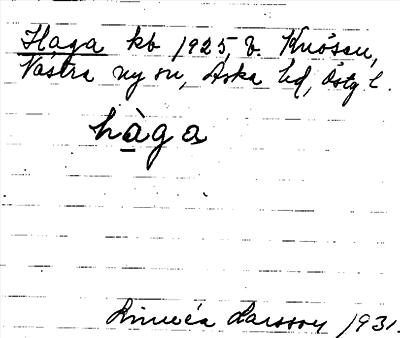 Haga kb 1925, v. Knössen,
Västra ny sn, Aska hd, Östg l.
hàga
Linnéa Larsson 1931.